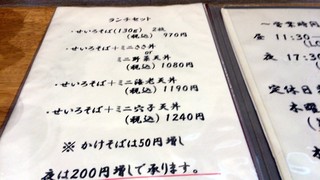 ランチセット
・せいろそば(130g) 2枚
(税込) 970円
・せいろそば+ミニささ丼
or
ミニ野菜天丼
(税込) 1080円
・せいろそば+ミニ海老天丼
(税込) 1190円
・せいろそば+ミニ穴子天丼
(税込) 1240円
※ かけそばは50円増し
夜は200円増しで承ります。
～営業時間
昼 11:30
夜 17:30
定休日
木曜